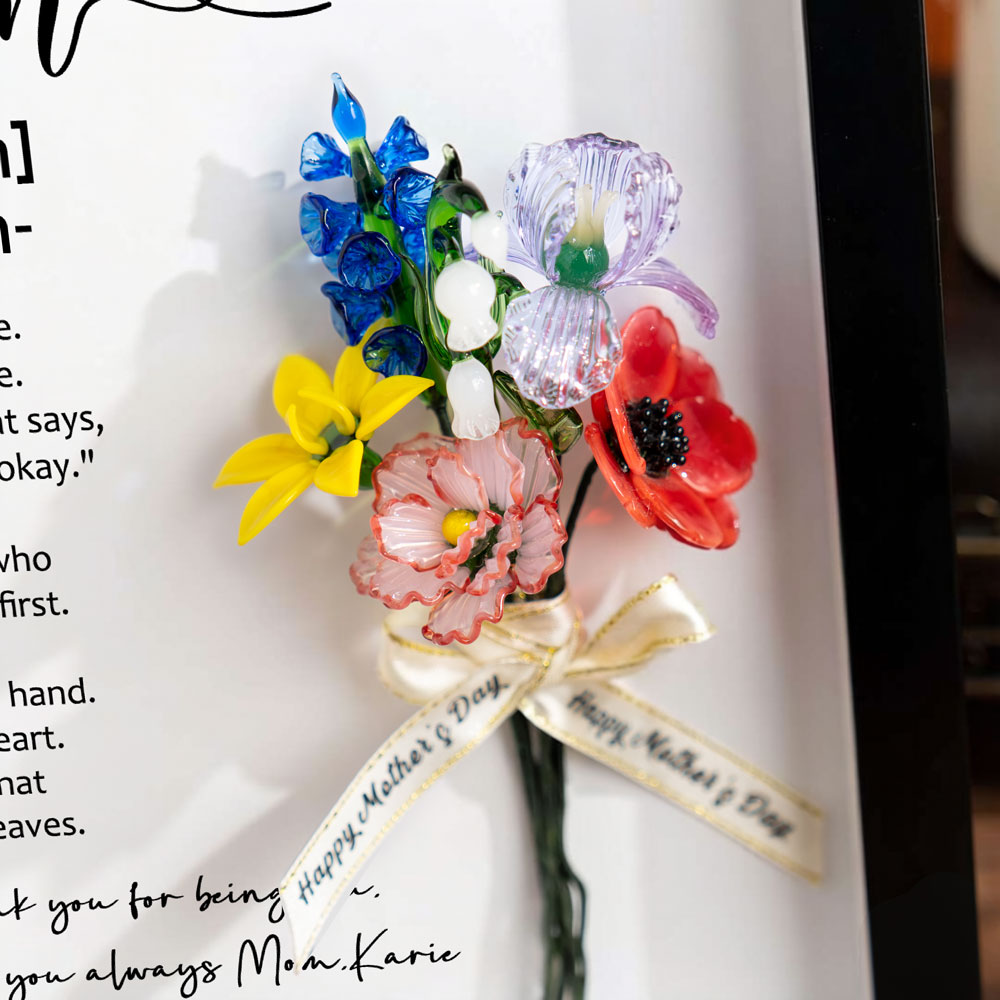 n]
n-
e.
e.
at says,
okay."
who
first.
hand.
eart.
hat
eaves.
nk you for being
you always Mom.Karie
Happy Mother's Day
Happy Mother's Day